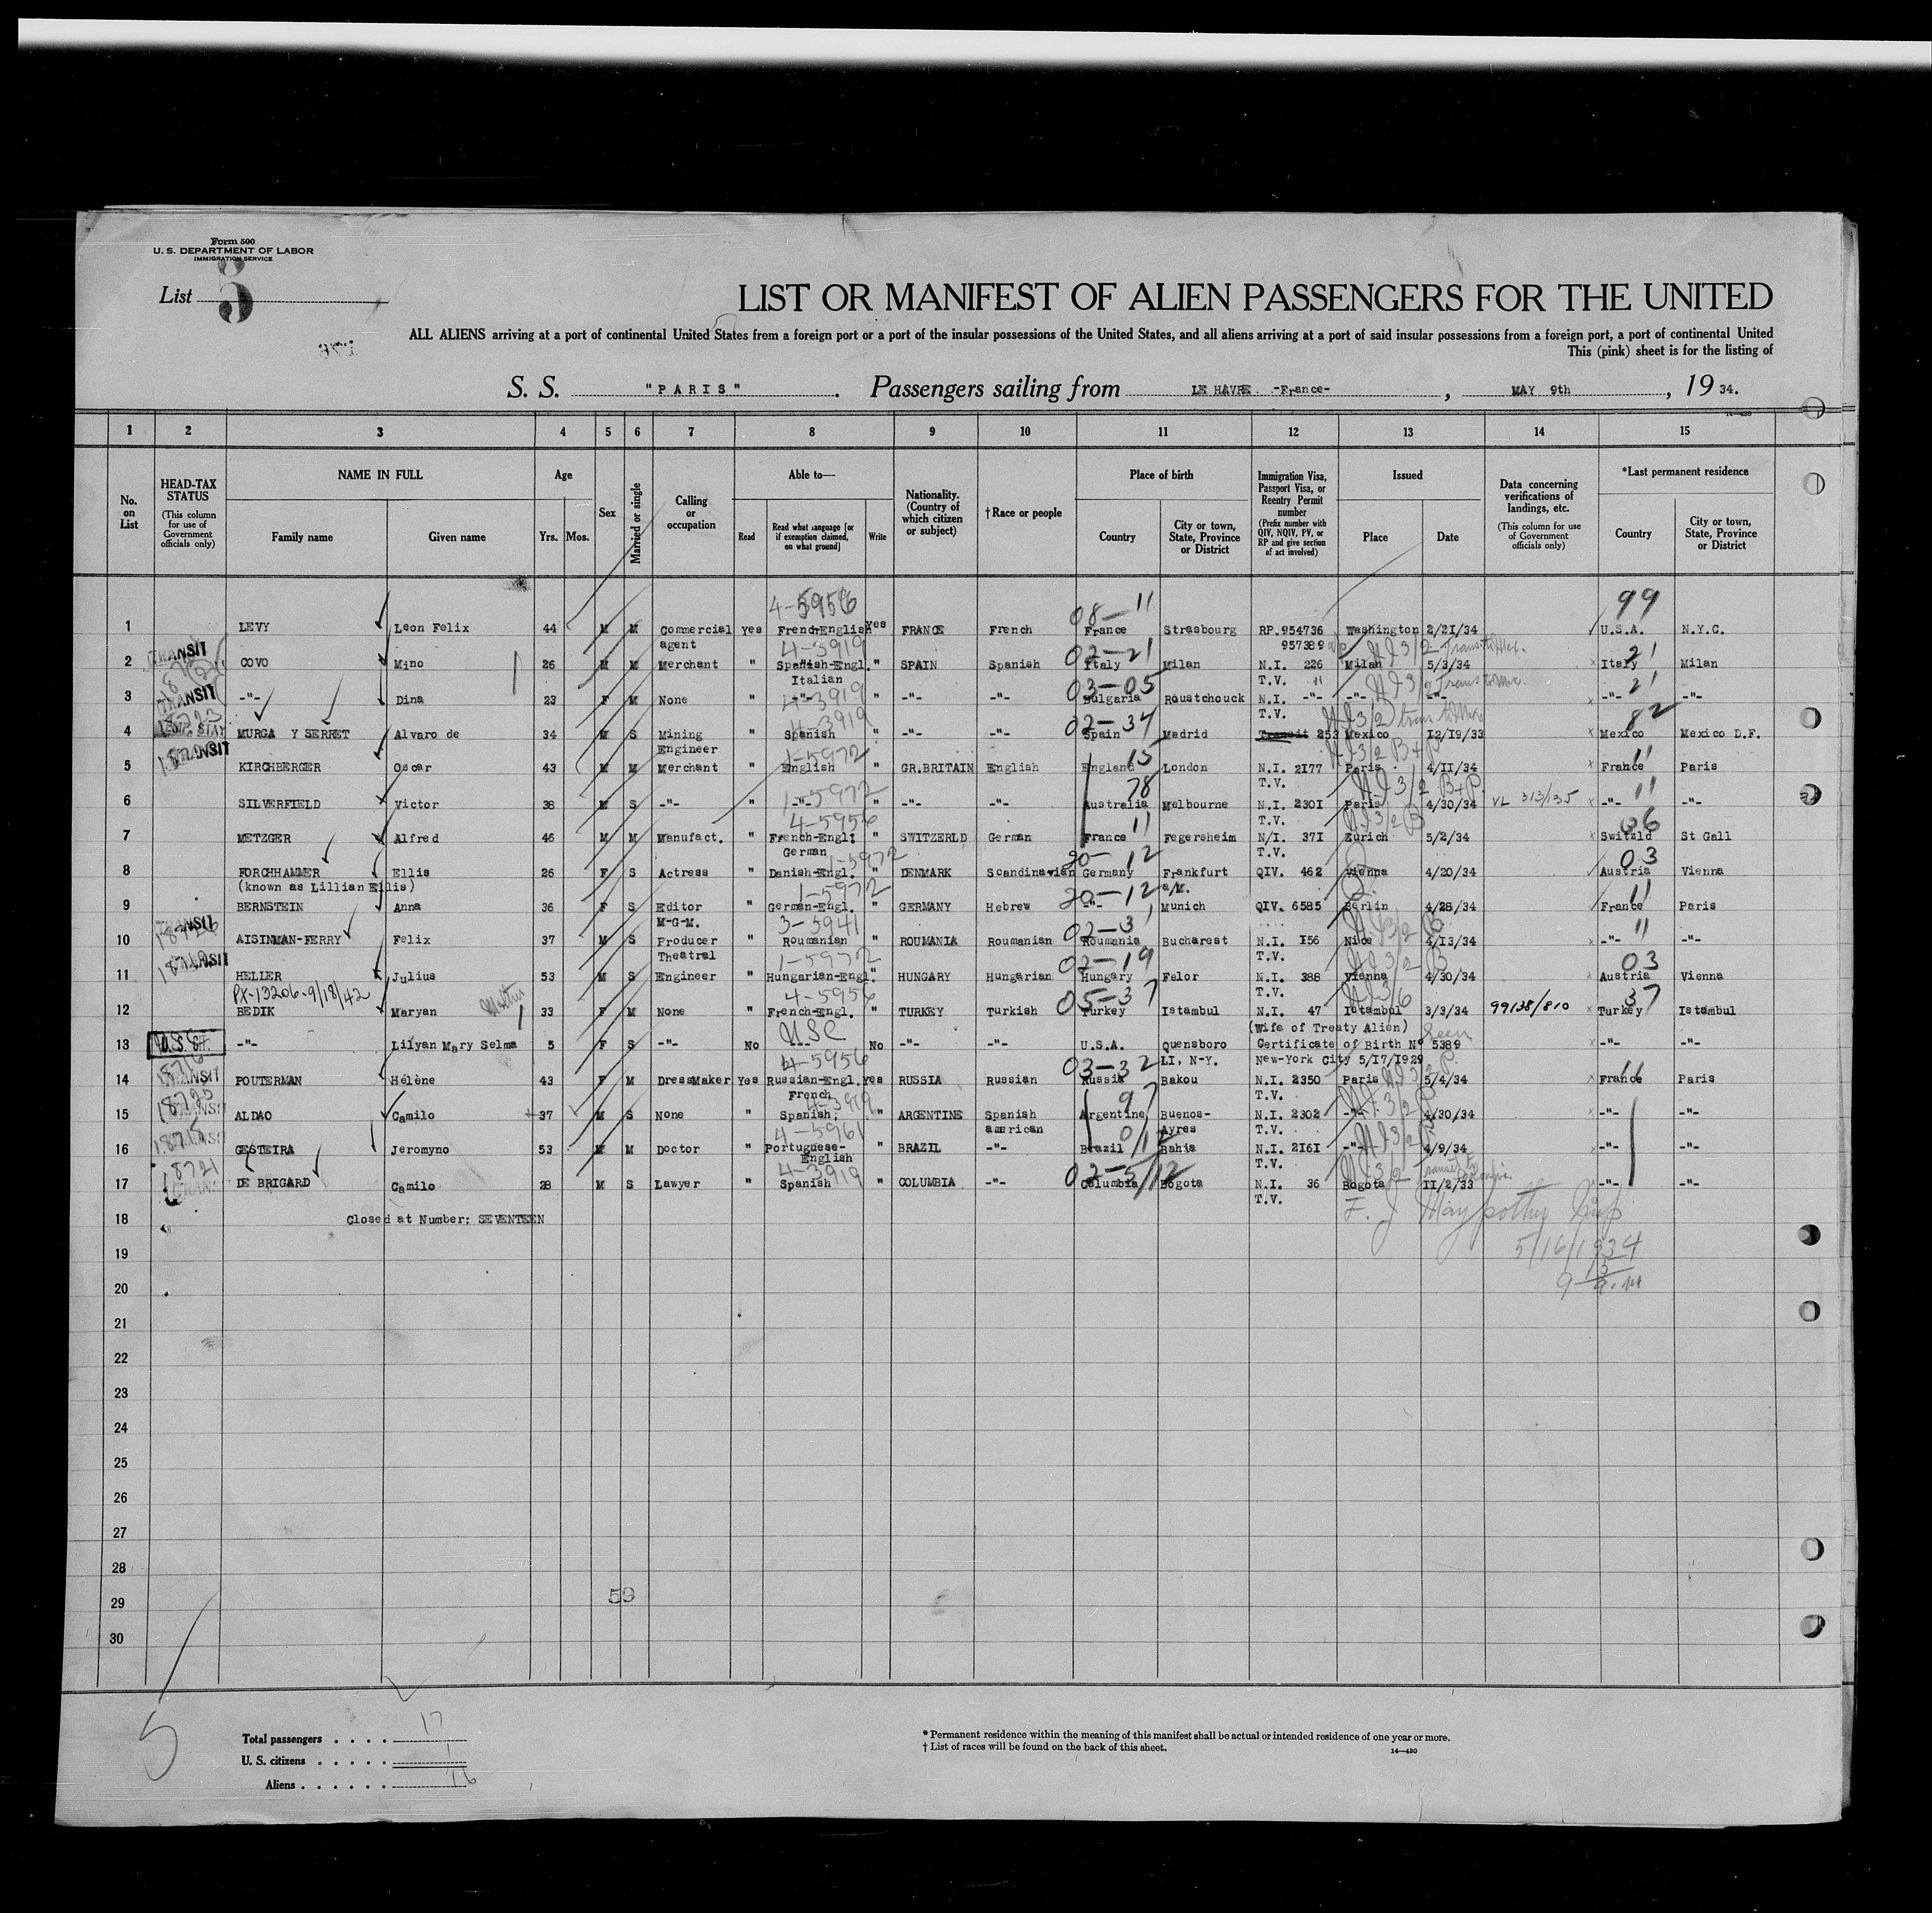 Form 500
U. S. DEPARTMENT OF LABOR
IMMIGRATION SERVICE
List 5
LIST OR MANIFEST OF ALIEN PASSENGERS FOR THE UNITED
ALL ALIENS arriving at a port of continental United States from a foreign port or a port of the insular possessions of the United States, and all aliens arriving at a port of said insular possessions from a foreign port, a port of continental United
This (pink) sheet is for the listing of
S. S. "PARIS". Passengers sailing from LE HAVRE -France-, MAY 9th, 19 34.
14—430
1 2 3 4 5 6 7 8 9 10 11 12 13 14 15
No. on List
HEAD-TAX STATUS (This column for use of Government officials only)
NAME IN FULL Family name Given name
Age Yrs. Mos.
Sex
Married or single
Calling or occupation
Able to— Read Read what language [or if exemption claimed, on what ground] Write
Nationality. (Country of which citizen or subject)
†Race or people
Place of birth Country City or town, State, Province or District
Immigration Visa, Passport Visa, or Reentry Permit number (Prefix number with QIV, NQIV, PV, or RP and give section of act involved)
Issued Place Date
Data concerning verifications of landings, etc. (This column for use of Government officials only)
*Last permanent residence Country City or town, State, Province or District
4-5956 08-11 99
1 LEVY Leon Felix 44 M M Commercial agent yes French-English yes FRANCE French France Strasbourg RP.954736 957389 Washington 2/21/34 U.S.A. N.Y.C.
TRANSIT 4-3919 02-21 21
2 COVO Mino 26 M M Merchant " Spanish-Engl. Italian " SPAIN Spanish Italy Milan N.I. 226 T.V. Milan 5/3/34 Italy Milan
TRANSIT 4-3919 03-05 21
3 -"- Dina 23 F M None " -"- " -"- -"- Bulgaria Roustchouck N.I. -"- T.V. -"- -"- -"- -"-
18723 4-3919 02-34 82
4 MURGA Y SERRET Alvaro de 34 M S Mining Engineer " Spanish " -"- -"- Spain Madrid Transit 253 Mexico 12/19/33 Mexico Mexico D.F.
TRANSIT 1-5972 15 11
5 KIRCHBERGER Oscar 43 M M Merchant " English " GR.BRITAIN English England London N.I. 2177 T.V. Paris 4/11/34 France Paris
1-5972 78 11
6 SILVERFIELD Victor 38 M S -"- " -"- " -"- -"- Australia Melbourne N.I. 2301 T.V. Paris 4/30/34 VL 313/135 -"- -"-
4-5956 11 06
7 METZGER Alfred 46 M M Manufact. " French-Engl. German " SWITZERLD German France Fegersheim N/I. 371 T.V. Zurich 5/2/34 Switzld St Gall
1-5972 20-12 03
8 FORCHHAMMER (known as Lillian Ellis) Ellis 26 F S Actress " Danish-Engl. " DENMARK Scandinavian Germany Frankfurt a/M. QIV. 462 Vienna 4/20/34 Austria Vienna
1-5972 20-12 11
9 BERNSTEIN Anna 36 F S Editor M-G-M. " German-Engl. " GERMANY Hebrew -"- Munich QIV. 6585 Berlin 4/28/34 France Paris
TRANSIT 3-5941 02-31 11
10 AISINMAN-FERRY Felix 37 M S Producer Theatral " Roumanian " ROUMANIA Roumanian Roumania Bucharest N.I. 156 T.V. Nice 4/13/34 -"- -"-
TRANSIT 1-5972 02-19 03
11 HELLER Julius 53 M S Engineer " Hungarian-Engl. " HUNGARY Hungarian Hungary Felor N.I. 388 T.V. Vienna 4/30/34 Austria Vienna
PX-13206-9/18/42 4-5956 05-37 37
12 BEDIK Maryan 33 F M None " French-Engl. " TURKEY Turkish Turkey Istambul N.I. 47 (Wife of Treaty Alien) Istambul 3/3/34 99138/810 Turkey Istambul
USC
13 U.S.CIT. -"- Lilyan Mary Selma 5 F S -"- No --- No -"- -"- U.S.A. Quensboro LI, N-Y. Certificate of Birth N° 5389 New-York City 5/17/1929 -"- -"-
TRANSIT 4-5956 03-32 11
14 POUTERMAN Hélène 43 F M DressMaker Yes Russian-Engl. French Yes RUSSIA Russian Russia Bakou N.I. 2350 T.V. Paris 5/4/34 France Paris
18725 TRANSIT 4-3919 97
15 ALDAO Camilo 37 M S None " Spanish, " ARGENTINE Spanish american Argentine Buenos-Ayres N.I. 2302 T.V. -"- 4/30/34 -"- -"-
4-5961
16 GESTEIRA Jeromyno 53 M M Doctor " Portuguese-English " BRAZIL -"- Brazil Bahia N.I. 2161 T.V. -"- 4/9/34 -"- -"-
18721 4-3919 02-5/12
17 DE BRIGARD Camilo 28 M S Lawyer " Spanish " COLUMBIA -"- Columbia Bogota N.I. 36 T.V. Bogota 11/2/33 -"- -"-
18 Closed at Number: SEVENTEEN
19 5/16/1934
20
21
22
23
24
25
26
27
28
29 59
30
5
Total passengers . . . . 17
U. S. citizens . . . . . 1
Aliens . . . . . . 16
* Permanent residence within the meaning of this manifest shall be actual or intended residence of one year or more.
† List of races will be found on the back of this sheet.
14—430